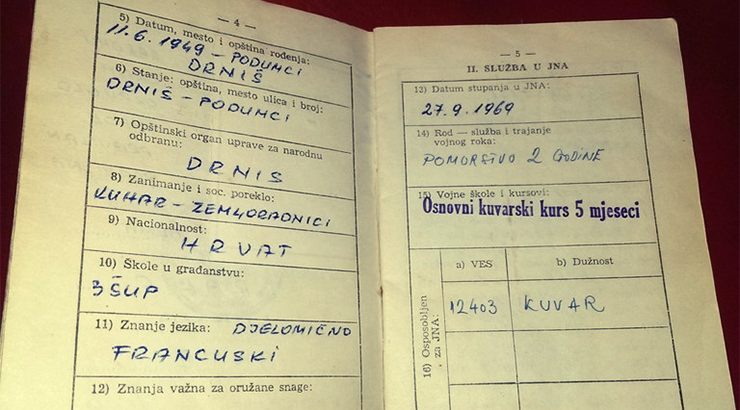 — 4 —
5) Datum, mesto i opština rođenja:
11.6.1949 - PODUMCI
DRNIŠ
6) Stanje: opština, mesto ulica i broj:
DRNIŠ - PODUMCI
7) Opštinski organ uprave za narodnu
odbranu:
DRNIS
8) Zanimanje i soc. poreklo:
KUHAR - ZEMLJORADNICI
9) Nacionalnost:
HRVAT
10) Škole u građanstvu:
3 ŠUP
11) Znanje jezika: DJELOMIČNO
FRANCUSKI
12) Znanja važna za oružane snage:
— 5 —
II. SLUŽBA U JNA
13) Datum stupanja u JNA:
27.9.1969
14) Rod — služba i trajanje
vojnog roka:
POMORSTVO 2 GODINE
15) Vojne škole i kursovi:
Osnovni kuvarski kurs 5 mjeseci
16) Osposobljen
za JNA:
a) VES
b) Dužnost
12403
KUVAR